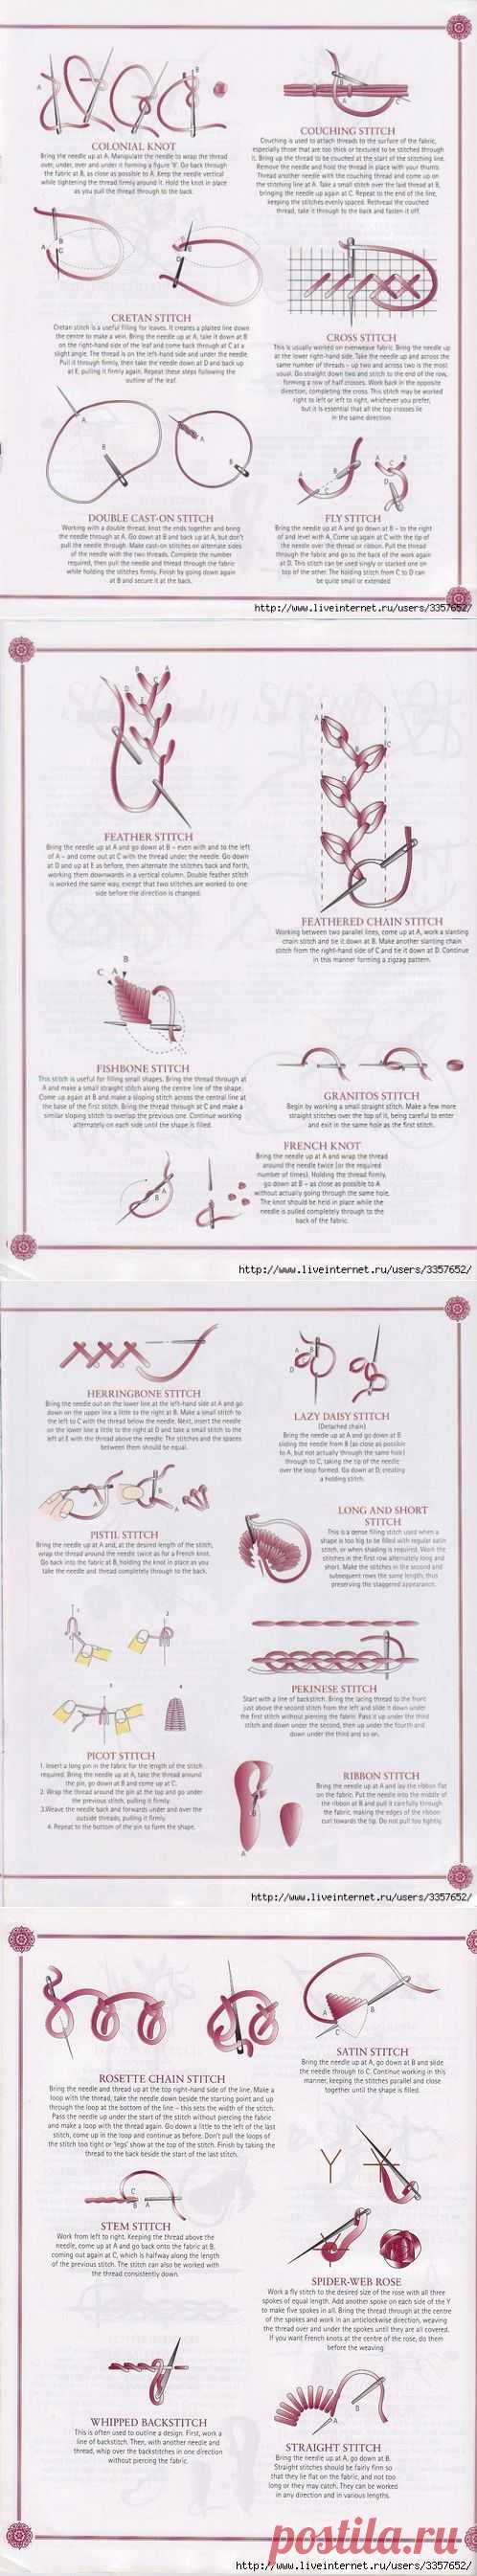 COLONIAL KNOT
Bring the needle up at A. Manipulate the needle to wrap the thread
over, under, over and under it forming a figure '8'. Go back through
the fabric at B, as close as possible to A. Keep the needle vertical
while tightening the thread firmly around it. Hold the knot in place
as you pull the thread through to the back.
COUCHING STITCH
Couching is used to attach threads to the surface of the fabric,
especially those that are too thick or textured to be stitched through
it. Bring up the thread to be couched at the start of the stitching line.
Remove the needle and hold the thread in place with your thumb.
Thread another needle with the couching thread and come up on
the stitching line at A. Take a small stitch over the laid thread at B,
bringing the needle up again at C. Repeat to the end of the line,
keeping the stitches evenly spaced. Rethread the couched
thread, take it through to the back and fasten it off.
CRETAN STITCH
Cretan stitch is a useful filling for leaves. It creates a plaited line down
the centre to make a vein. Bring the needle up at A, take it down at B
on the right-hand side of the leaf and come back through at C at a
slight angle. The thread is on the left-hand side and under the needle.
Pull it through firmly, then take the needle down at D and back up
at E, pulling it firmly again. Repeat these steps following the
outline of the leaf.
CROSS STITCH
This is usually worked on evenweave fabric. Bring the needle up
at the lower right-hand side. Take the needle up and across the
same number of threads – up two and across two is the most
usual. Go straight down two and stitch to the end of the row,
forming a row of half crosses. Work back in the opposite
direction, completing the cross. This stitch may be worked
right to left or left to right, whichever you prefer,
but it is essential that all the top crosses lie
in the same direction.
DOUBLE CAST-ON STITCH
Working with a double thread, knot the ends together and bring
the needle through at A. Go down at B and back up at A, but don't
pull the needle through. Make cast-on stitches on alternate sides
of the needle with the two threads. Complete the number
required, then pull the needle and thread through the fabric
while holding the stitches firmly. Finish by going down again
at B and secure it at the back.
FLY STITCH
Bring the needle up at A and go down at B – to the right
of and level with A. Come up again at C with the tip of
the needle over the thread or ribbon. Pull the thread
through the fabric and go to the back of the work again
at D. This stitch can be used singly or stacked one on
top of the other. The holding stitch from C to D can
be quite small or extended.
http://www.liveinternet.ru/users/3357652/
FEATHER STITCH
Bring the needle up at A and go down at B – even with and to the left
of A – and come out at C with the thread under the needle. Go down
at D and up at E as before, then alternate the stitches back and forth,
working them downwards in a vertical column. Double feather stitch
is worked the same way, except that two stitches are worked to one
side before the direction is changed.
FEATHERED CHAIN STITCH
Working between two parallel lines, come up at A, work a slanting
chain stitch and tie it down at B. Make another slanting chain
stitch from the right-hand side of C and tie it down at D. Continue
in this manner forming a zigzag pattern.
FISHBONE STITCH
This stitch is useful for filling small shapes. Bring the thread through at
A and make a small straight stitch along the centre line of the shape.
Come up again at B and make a sloping stitch across the central line at
the base of the first stitch. Bring the thread through at C and make a
similar sloping stitch to overlap the previous one. Continue working
alternately on each side until the shape is filled.
GRANITOS STITCH
Begin by working a small straight stitch. Make a few more
straight stitches over the top of it, being careful to enter
and exit in the same hole as the first stitch.
FRENCH KNOT
Bring the needle up at A and wrap the thread
around the needle twice (or the required
number of times). Holding the thread firmly,
go down at B – as close as possible to A
without actually going through the same hole.
The knot should be held in place while the
needle is pulled completely through to the
back of the fabric.
http://www.liveinternet.ru/users/3357652/
HERRINGBONE STITCH
Bring the needle out on the lower line at the left-hand side at A and go
down on the upper line a little to the right at B. Make a small stitch to
the left to C with the thread below the needle. Next, insert the needle
on the lower line a little to the right at D and take a small stitch to the
left at E with the thread above the needle. The stitches and the spaces
between them should be equal.
LAZY DAISY STITCH
(Detached chain)
Bring the needle up at A and go down at B
sliding the needle from B (as close as possible
to A, but not actually through the same hole)
through to C, taking the tip of the needle
over the loop formed. Go down at D, creating
a holding stitch.
PISTIL STITCH
Bring the needle up at A and, at the desired length of the stitch,
wrap the thread around the needle twice as for a French knot.
Go back into the fabric at B, holding the knot in place as you
take the needle and thread completely through to the back.
LONG AND SHORT
STITCH
This is a dense filling stitch used when a
shape is too big to be filled with regular satin
stitch, or when shading is required. Work the
stitches in the first row alternately long and
short. Make the stitches in the second and
subsequent rows the same length, thus
preserving the staggered appearance.
PEKINESE STITCH
Start with a line of backstitch. Bring the lacing thread to the front
just above the second stitch from the left and slide it down under
the first stitch without piercing the fabric. Pass it up under the third
stitch and down under the second, then up under the fourth and
down under the third and so on.
PICOT STITCH
1. Insert a long pin in the fabric for the length of the stitch
required. Bring the needle up at A, take the thread around
the pin, go down at B and come up at C.
2. Wrap the thread around the pin at the top and go under
the previous stitch, pulling it firmly.
3.Weave the needle back and forwards under and over the
outside threads, pulling it firmly.
4. Repeat to the bottom of the pin to form the shape.
RIBBON STITCH
Bring the needle up at A and lay the ribbon flat
on the fabric. Put the needle into the middle of
the ribbon at B and pull it carefully through
the fabric, making the edges of the ribbon
curl towards the tip. Do not pull too tightly.
http://www.liveinternet.ru/users/3357652/
ROSETTE CHAIN STITCH
Bring the needle and thread up at the top right-hand side of the line. Make a
loop with the thread, take the needle down beside the starting point and up
through the loop at the bottom of the line – this sets the width of the stitch.
Pass the needle up under the start of the stitch without piercing the fabric
and make a loop with the thread again. Go down a little to the left of the last
stitch, come up in the loop and continue as before. Don't pull the loops of
the stitch too tight or 'legs' show at the top of the stitch. Finish by taking the
thread to the back beside the start of the last stitch.
SATIN STITCH
Bring the needle up at A, go down at B and slide
the needle through to C. Continue working in this
manner, keeping the stitches parallel and close
together until the shape is filled.
STEM STITCH
Work from left to right. Keeping the thread above the
needle, come up at A and go back onto the fabric at B,
coming out again at C, which is halfway along the length
of the previous stitch. The stitch can also be worked with
the thread consistently down.
SPIDER-WEB ROSE
Work a fly stitch to the desired size of the rose with all three
spokes of equal length. Add another spoke on each side of the Y
to make five spokes in all. Bring the thread through at the centre
of the spokes and work in an anticlockwise direction, weaving
the thread over and under the spokes until they are all covered.
If you want French knots at the centre of the rose, do them
before the weaving.
WHIPPED BACKSTITCH
This is often used to outline a design. First, work a
line of backstitch. Then, with another needle and
thread, whip over the backstitches in one direction
without piercing the fabric.
STRAIGHT STITCH
Bring the needle up at A, go down at B.
Straight stitches should be fairly firm so
that they lie flat on the fabric, and not too
long or they may catch. They can be worked
in any direction and in various lengths.
postila.ru
http://www.liveinternet.ru/users/3357652/